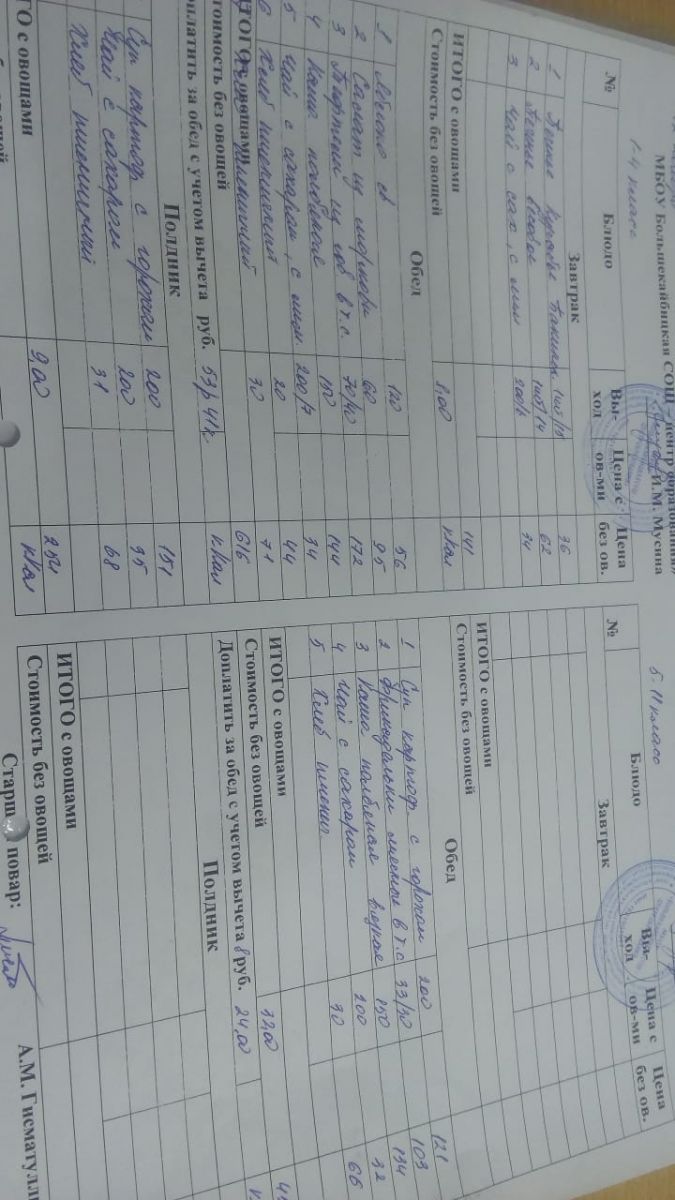 МБОУ Большекайбицкая СОШ – центр образования
И.М. Мусина
1-4 класс
№ Блюдо Вы-ход Цена с ов-ми Цена без ов.
Завтрак
1 26
2 62
3 Чай с сах, с лим 200/7 34
ИТОГО с овощами 141
Стоимость без овощей 8,00 ккал
Обед
1 Яблоко св 120 56
2 Салат из моркови 60 95
3 Тефтели из гов в т.с. 70/40 172
4 Каша полбяная 150 144
5 Чай с сахаром, с лим 200/7 34
6 Хлеб пшеничный 20 44
30 71
ИТОГО с овощами 616
Стоимость без овощей ккал
Доплатить за обед с учетом вычета руб. 53р 41к
Полдник
Суп картоф. с горохом 200 151
Чай с сахаром 200 35
Хлеб пшеничный 31 68
ИТОГО с овощами 254
9,00 ккал
5-11 класс
№ Блюдо Вы-ход Цена с ов-ми Цена без ов.
Завтрак
ИТОГО с овощами
Стоимость без овощей
Обед
1 Суп картоф. с горохом 200 121
2 Фрикадельки мясные в т.с 33/30 103
3 Каша полбяная вязкая 150 134
4 Чай с сахаром 200 32
5 Хлеб пшенич 30 66
ИТОГО с овощами
Стоимость без овощей 32,00
Доплатить за обед с учетом вычета 8 руб. 24,00
Полдник
ИТОГО с овощами
Стоимость без овощей
Старш повар: А.М. Гисматулл